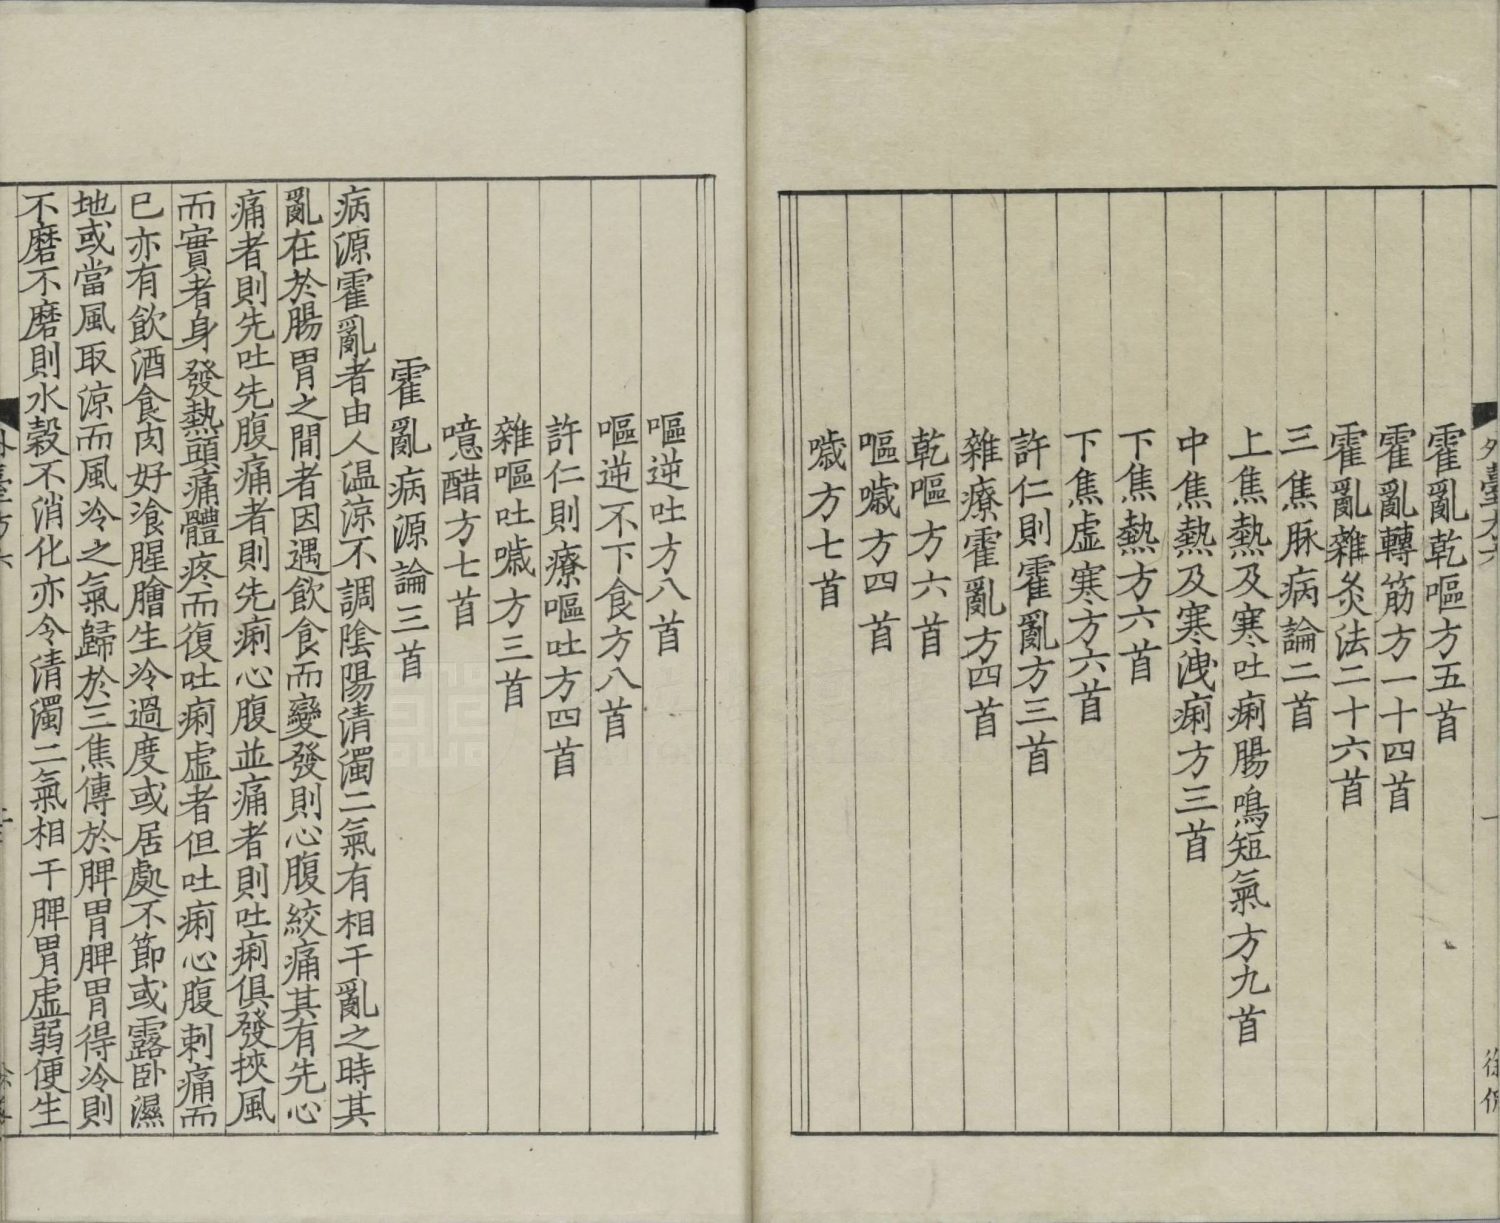 霍亂乾嘔方五首
霍亂轉筋方一十四首
霍亂雜灸法二十六首
三焦脉病論二首
上焦熱及寒吐痢腸鳴短氣方九首
中焦熱及寒洩痢方三首
下焦熱方六首
下焦虚寒方六首
許仁則霍亂方三首
雜療霍亂方四首
乾嘔方六首
嘔噦方四首
噦方七首
嘔逆吐方八首
嘔逆不下食方八首
許仁則療嘔吐方四首
雜嘔吐噦方三首
噫醋方七首
霍亂病源論三首
病源霍亂者由人温涼不調陰陽清濁二氣有相干亂之時其
亂在於腸胃之間者因遇飲食而變發則心腹絞痛其有先心
痛者則先吐先腹痛者則先痢心腹並痛者則吐痢俱發挾風
而實者身發熱頭痛體疼而復吐痢虚者但吐痢心腹刺痛而
已亦有飲酒食肉好飡腥膾生冷過度或居處不節或露卧濕
地或當風取涼而風冷之氣歸於三焦傳於脾胃脾胃得冷則
不磨不磨則水穀不消化亦令清濁二氣相干脾胃虚弱便生